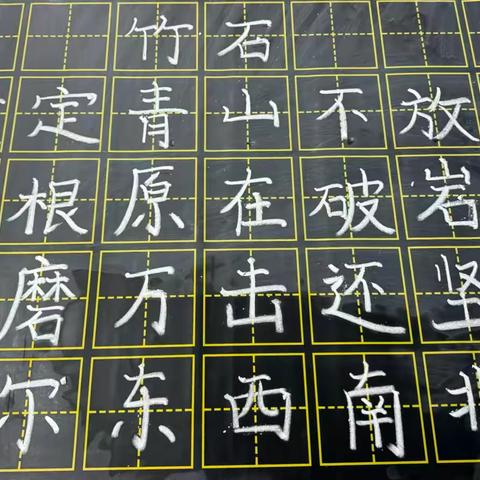 竹石
定青山不放
根原在破岩
磨万击还坚
尔东西南